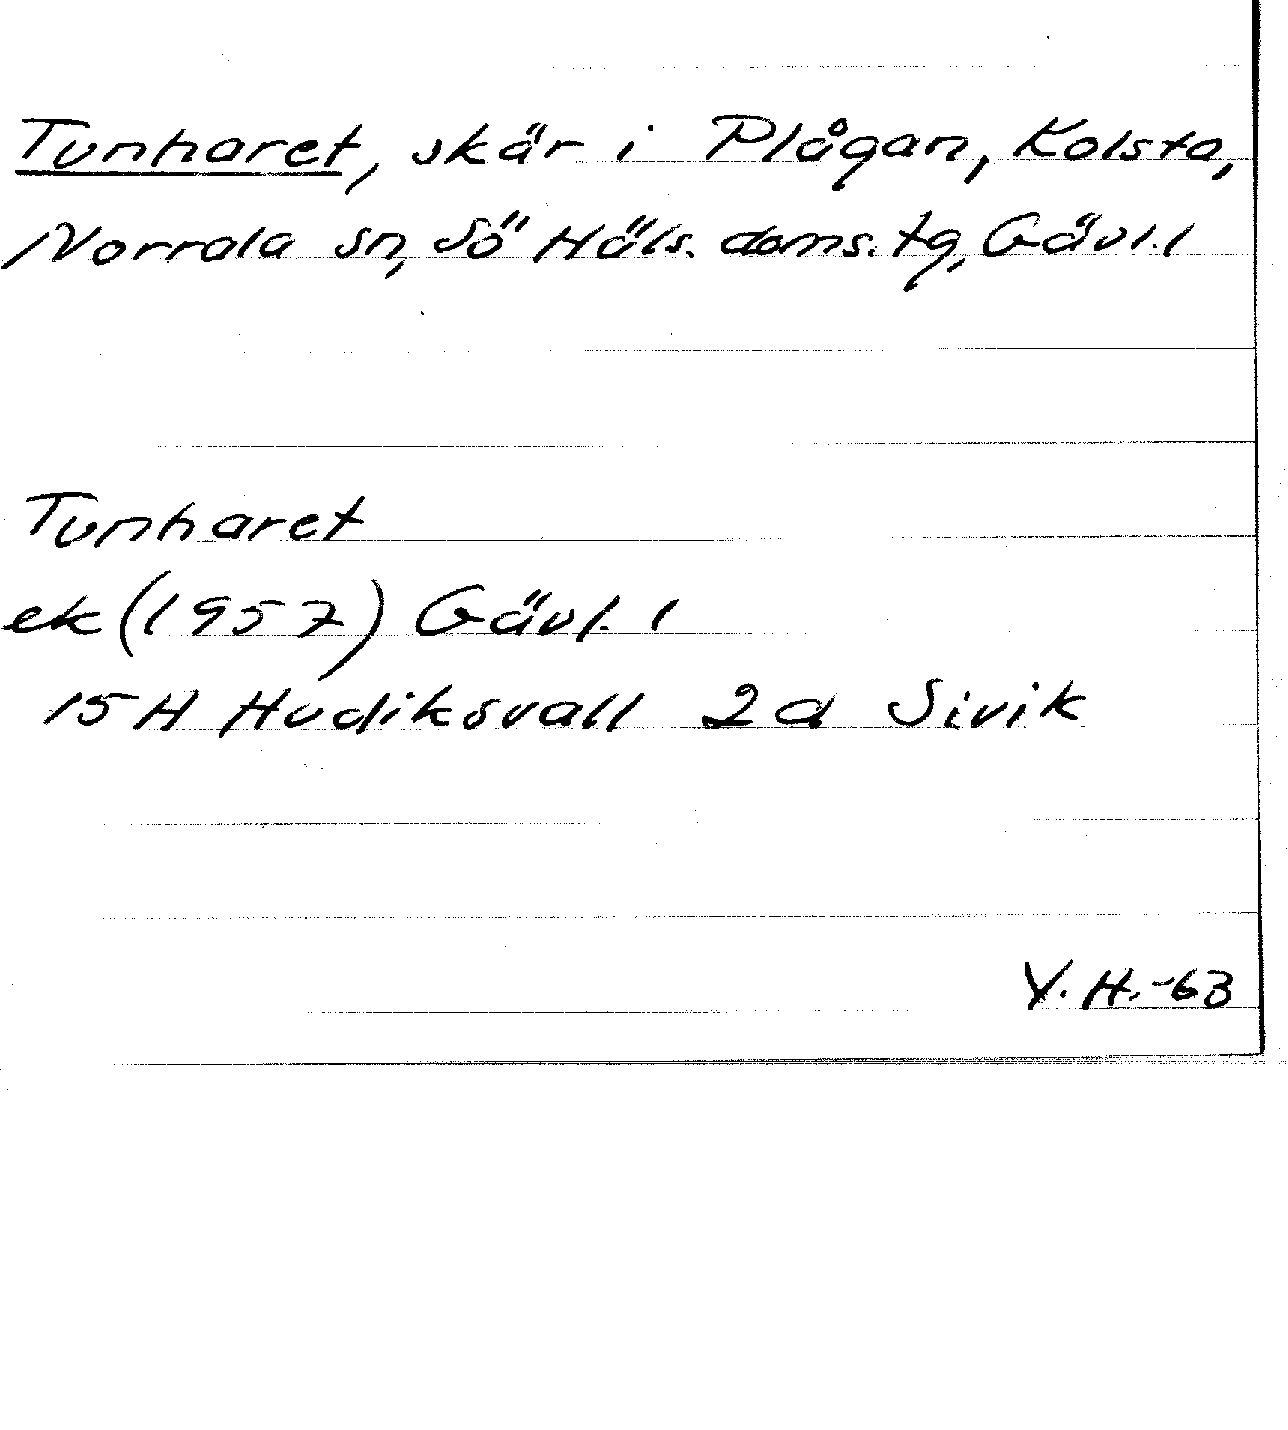 Tunharet, skär i Plågan, Kolsta,
Norrala sn, Sö Häls. doms. tg, Gävl. l
Tunharet
ek (1957) Gävl. l
15 H Hudiksvall 2 d Sivik
Y. H. -63